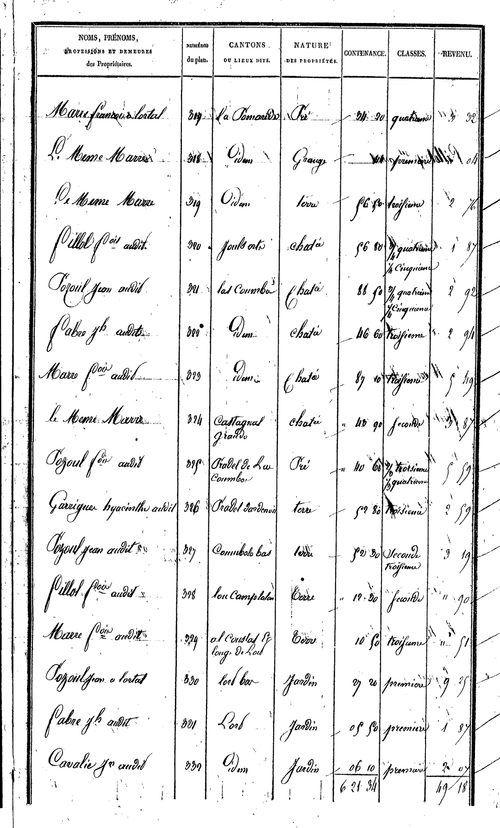 NOMS, PRÉNOMS, PROFESSIONS ET DEMEURES des Propriétaires. NUMÉROS du plan. CANTONS OU LIEUX DITS. NATURE DES PROPRIÉTÉS. CONTENANCE. CLASSES. REVENU.
Marre françois à lortal 317 La Pré 34 20 quatrieme 3 32
Le Meme Marre 318 Idem Grange première 04
Le Meme Marre 319 Idem terre 56 50 troisieme 2 76
fillol fçois audit 320 chatè 56 80 quatrieme 1 87
cinquieme
Pozoul jean audit 321 las Coumbes Chatè 88 50 quatrieme 2 92
cinquieme
fabre jh audit 322 Idem chatè 46 60 troisieme 2 94
Marre fçois audit 323 Idem Chatè 87 10 troisieme 5 49
le Meme Marre 324 Castagnal chatè 43 90 Seconde 87
grande
Pozoul fçois audit 325 Pradel de Las Pré 40 60 troisieme 5 59
coumbes quatrieme
Garrigues hyacinthe audit 326 Pradel terre 52 80 troisieme 2 59
Pozoul jean audit 327 bas terre 52 30 Seconde 3 19
troisieme
fillol fçois audit 328 Terre 12 30 Seconde 90
Marre fçois audit 329 al Coustal Terre 10 50 troisieme 51
Pozoul jean à lortal 330 lort bas Jardin 27 20 premiere 9 25
fabre jh audit 331 Lort Jardin 05 50 premiere 1 87
Cavalié jn audit 332 Idem Jardin 06 10 premiere 2 07
6 21 34 49 18